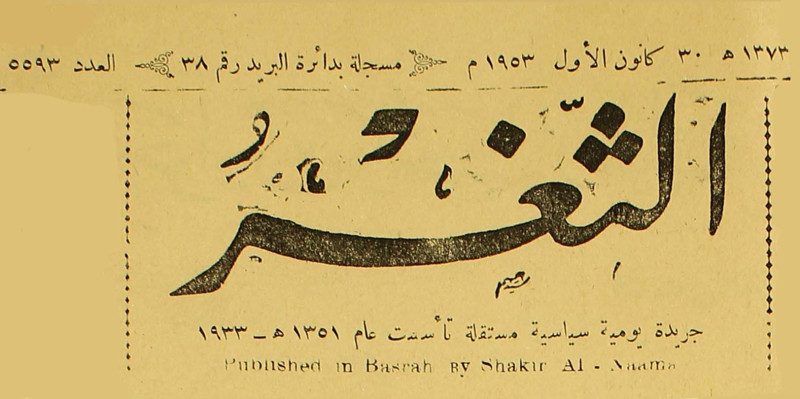 ١٣٧٣ هـ ٣٠ كانون الأول ١٩٥٣ م مسجلة بدائرة البريد رقم ٣٨ العدد ٥٥٩٣
الثغر
جريدة يومية سياسية مستقلة تأسست عام ١٣٥١ هـ - ١٩٣٣
Published in Basrah By Shakir Al - Naama